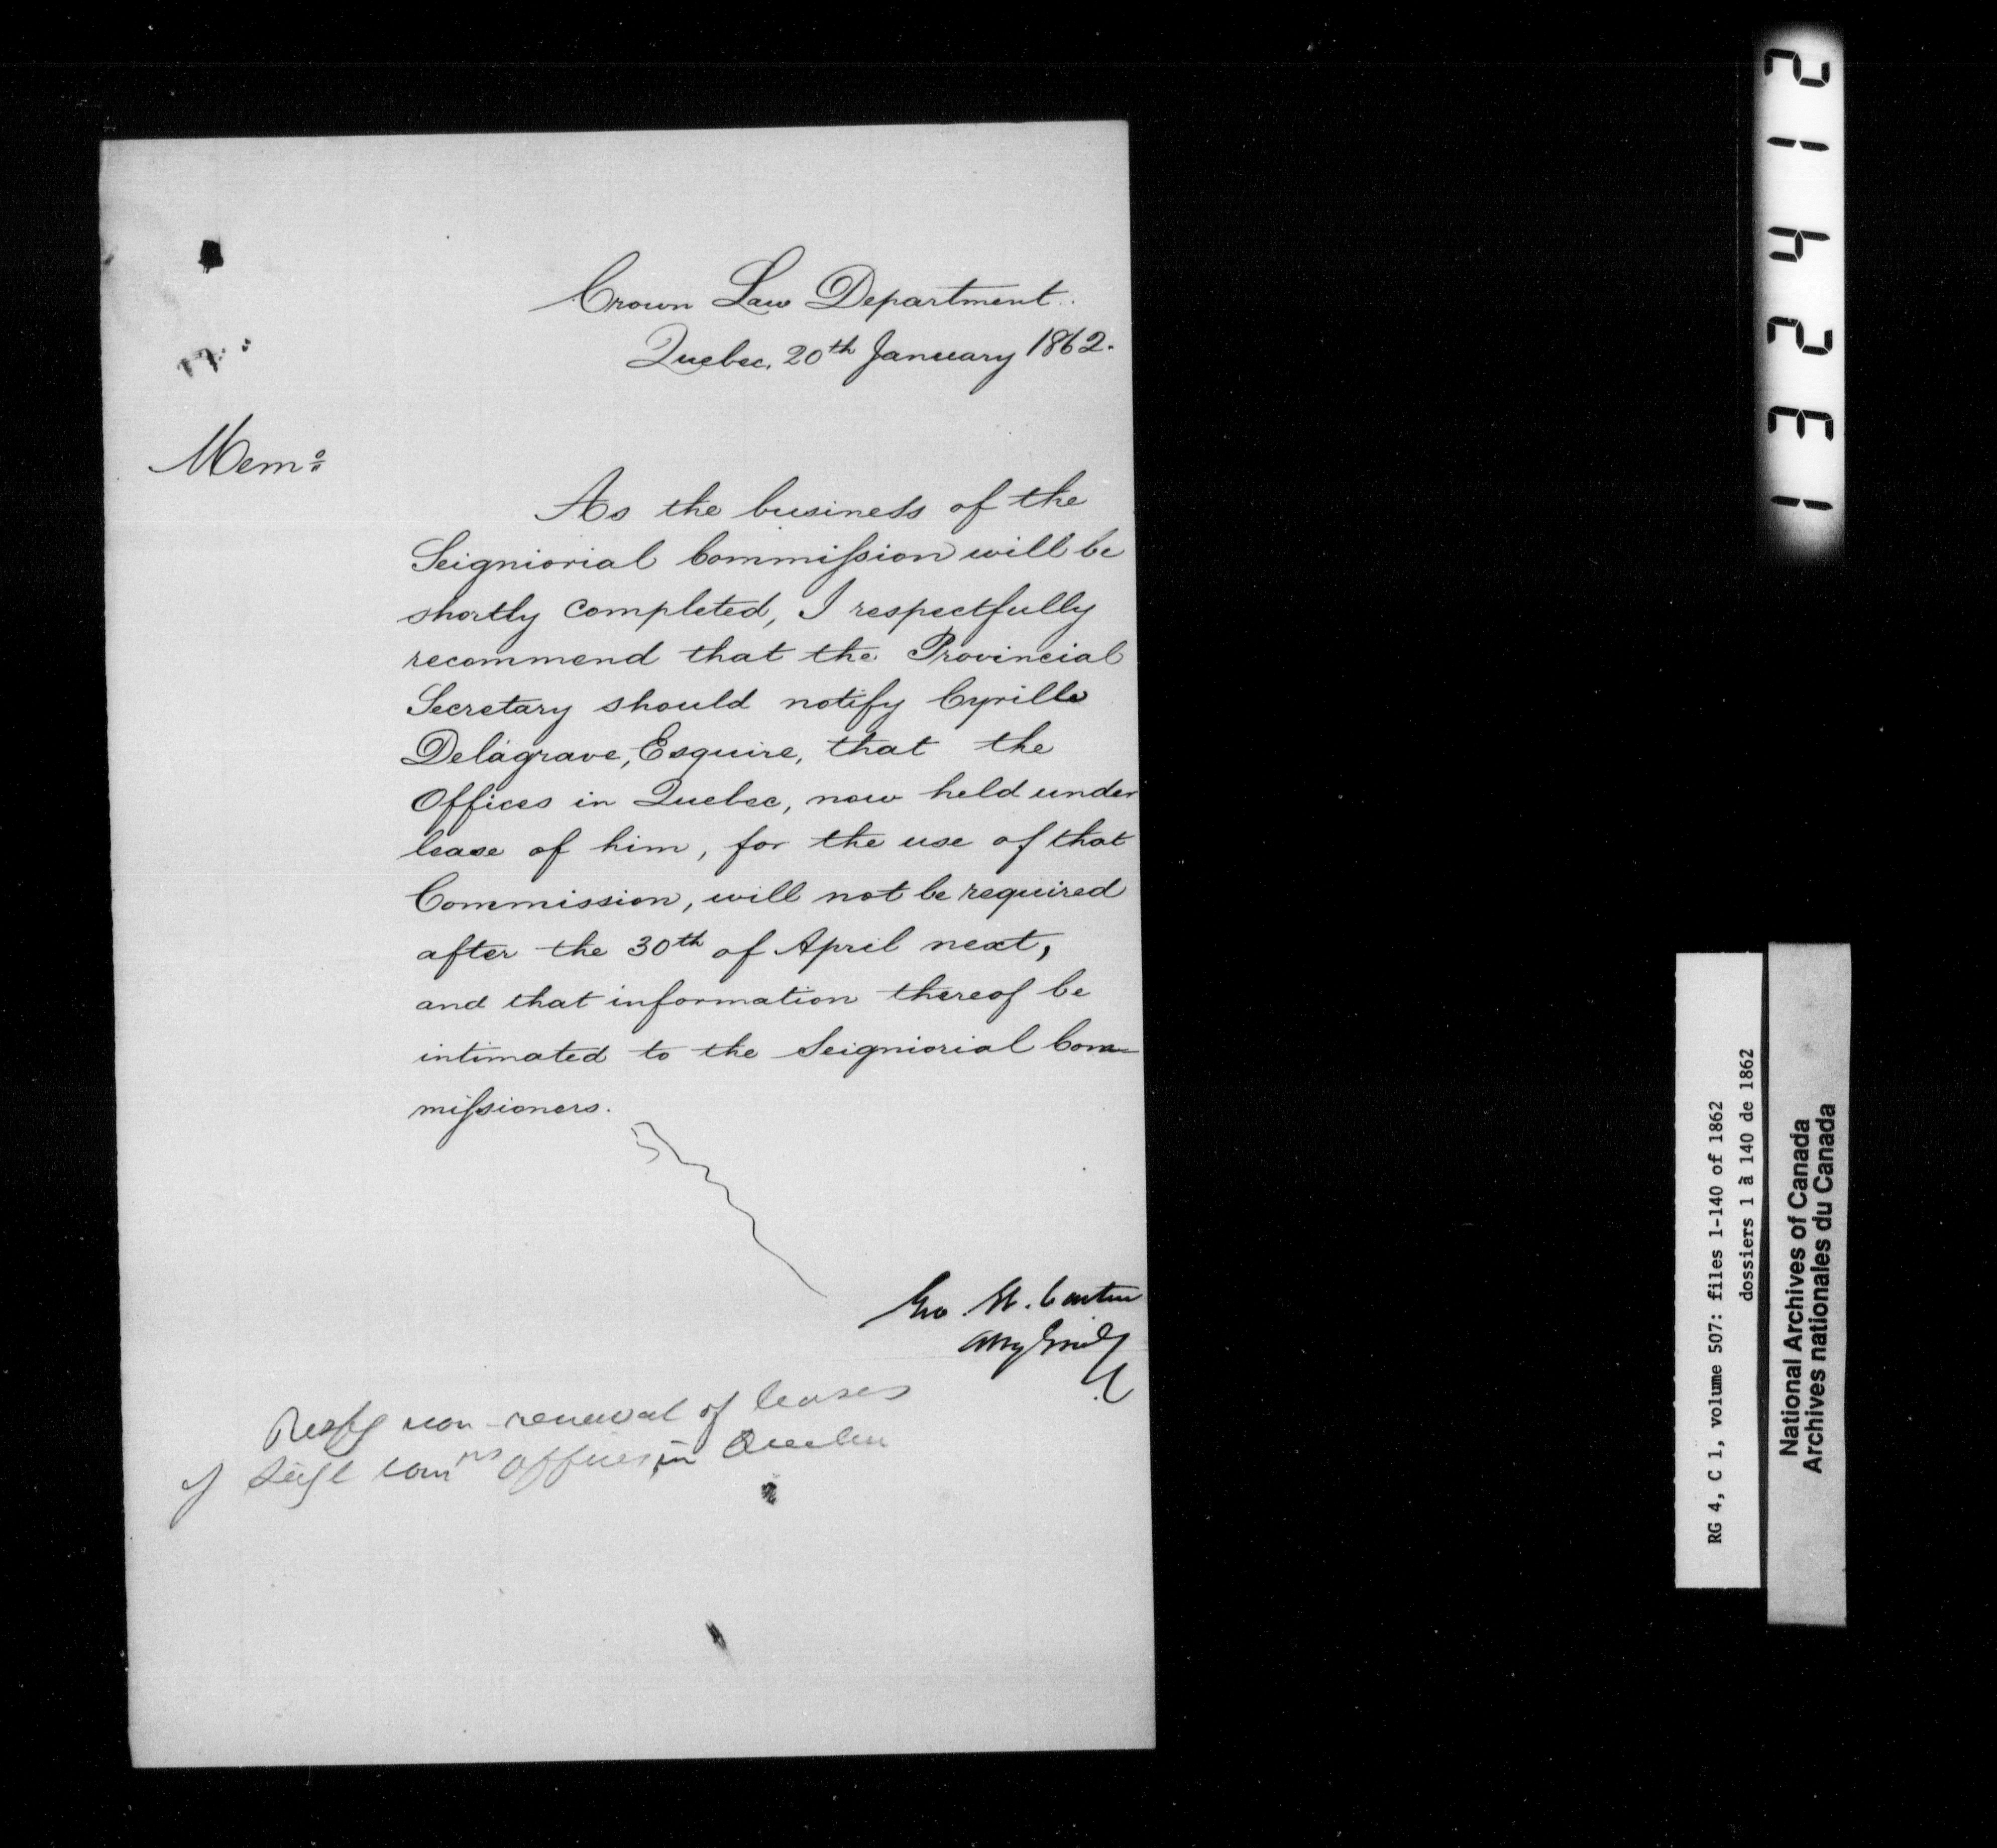 Crown Law Department.
Quebec, 20th January 1862.
Memo
As the business of the
Seigniorial Commission will be
shortly completed, I respectfully
recommend that the Provincial
Secretary should notify Cyrille
Delagrave, Esquire, that the
Offices in Quebec, now held under
lease of him, for the use of that
Commission, will not be required
after the 30th of April next,
and that information thereof be
intimated to the Seigniorial Com-
missioners.
Geo. Et. Cartier
Atty Genl
Respg non-renewal of leases
of Seigl Comrs offices in Quebec
124231
RG 4, C 1, volume 507: files 1-140 of 1862
dossiers 1 à 140 de 1862
National Archives of Canada
Archives nationales du Canada